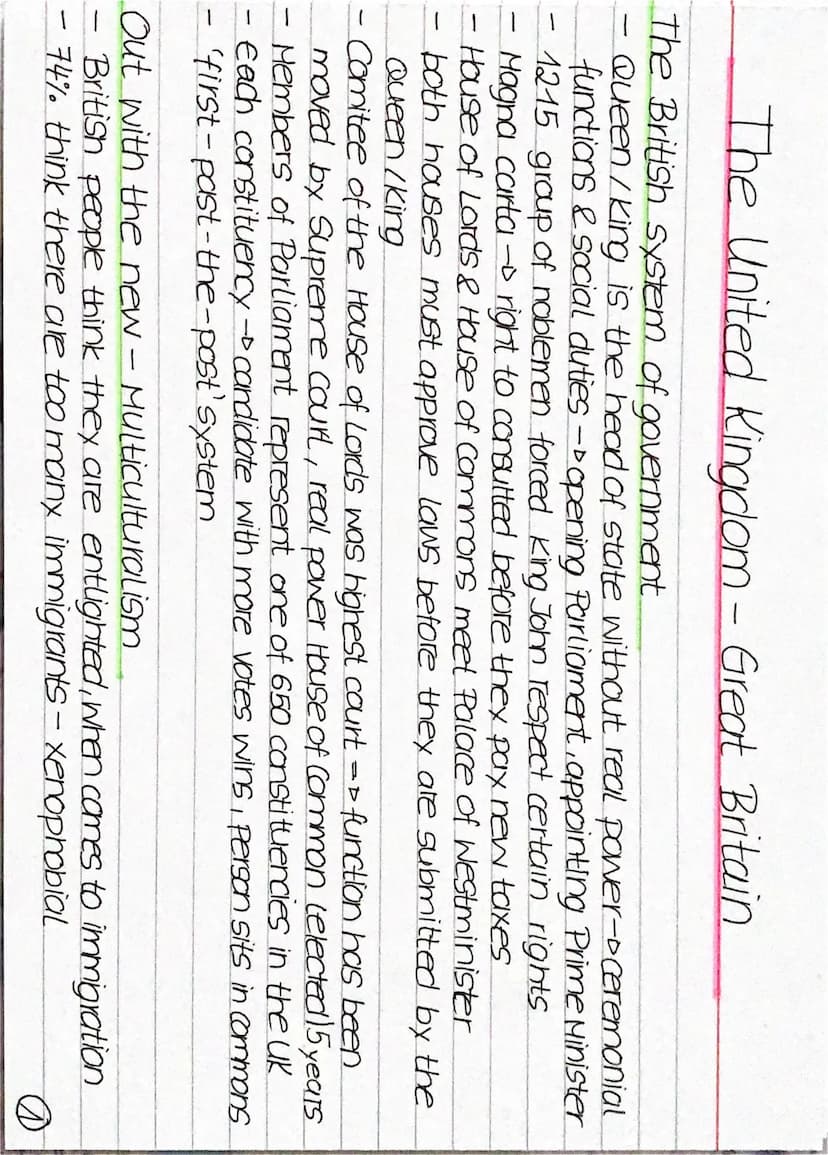 The United Kingdom - Great Britain
The British system of government
- Queen / King is the head of state without real power → ceremonial
functions & social duties → opening Parliament, appointing Prime Minister
- 1215 group of noblemen forced King John respect certain rights
- Magna carta → right to consulted before they pay new taxes
- House of Lords & House of Commons meet Palace of Westminister
- both houses must approve laws before they are submitted by the
Queen / King
- Comitee of the House of Lords was highest court => function has been
moved by Supreme Court, real power House of Common (elected) 5 years
- Members of Parliament represent one of 650 constituencies in the UK
- Each constituency → candidate with more votes wins, person sits in commons
- 'first-past-the-post' system
Out with the new - Multiculturalism
- British people think they are entlighted, when comes to immigration
- 74% think there are too many immigrants - xenophobial
1